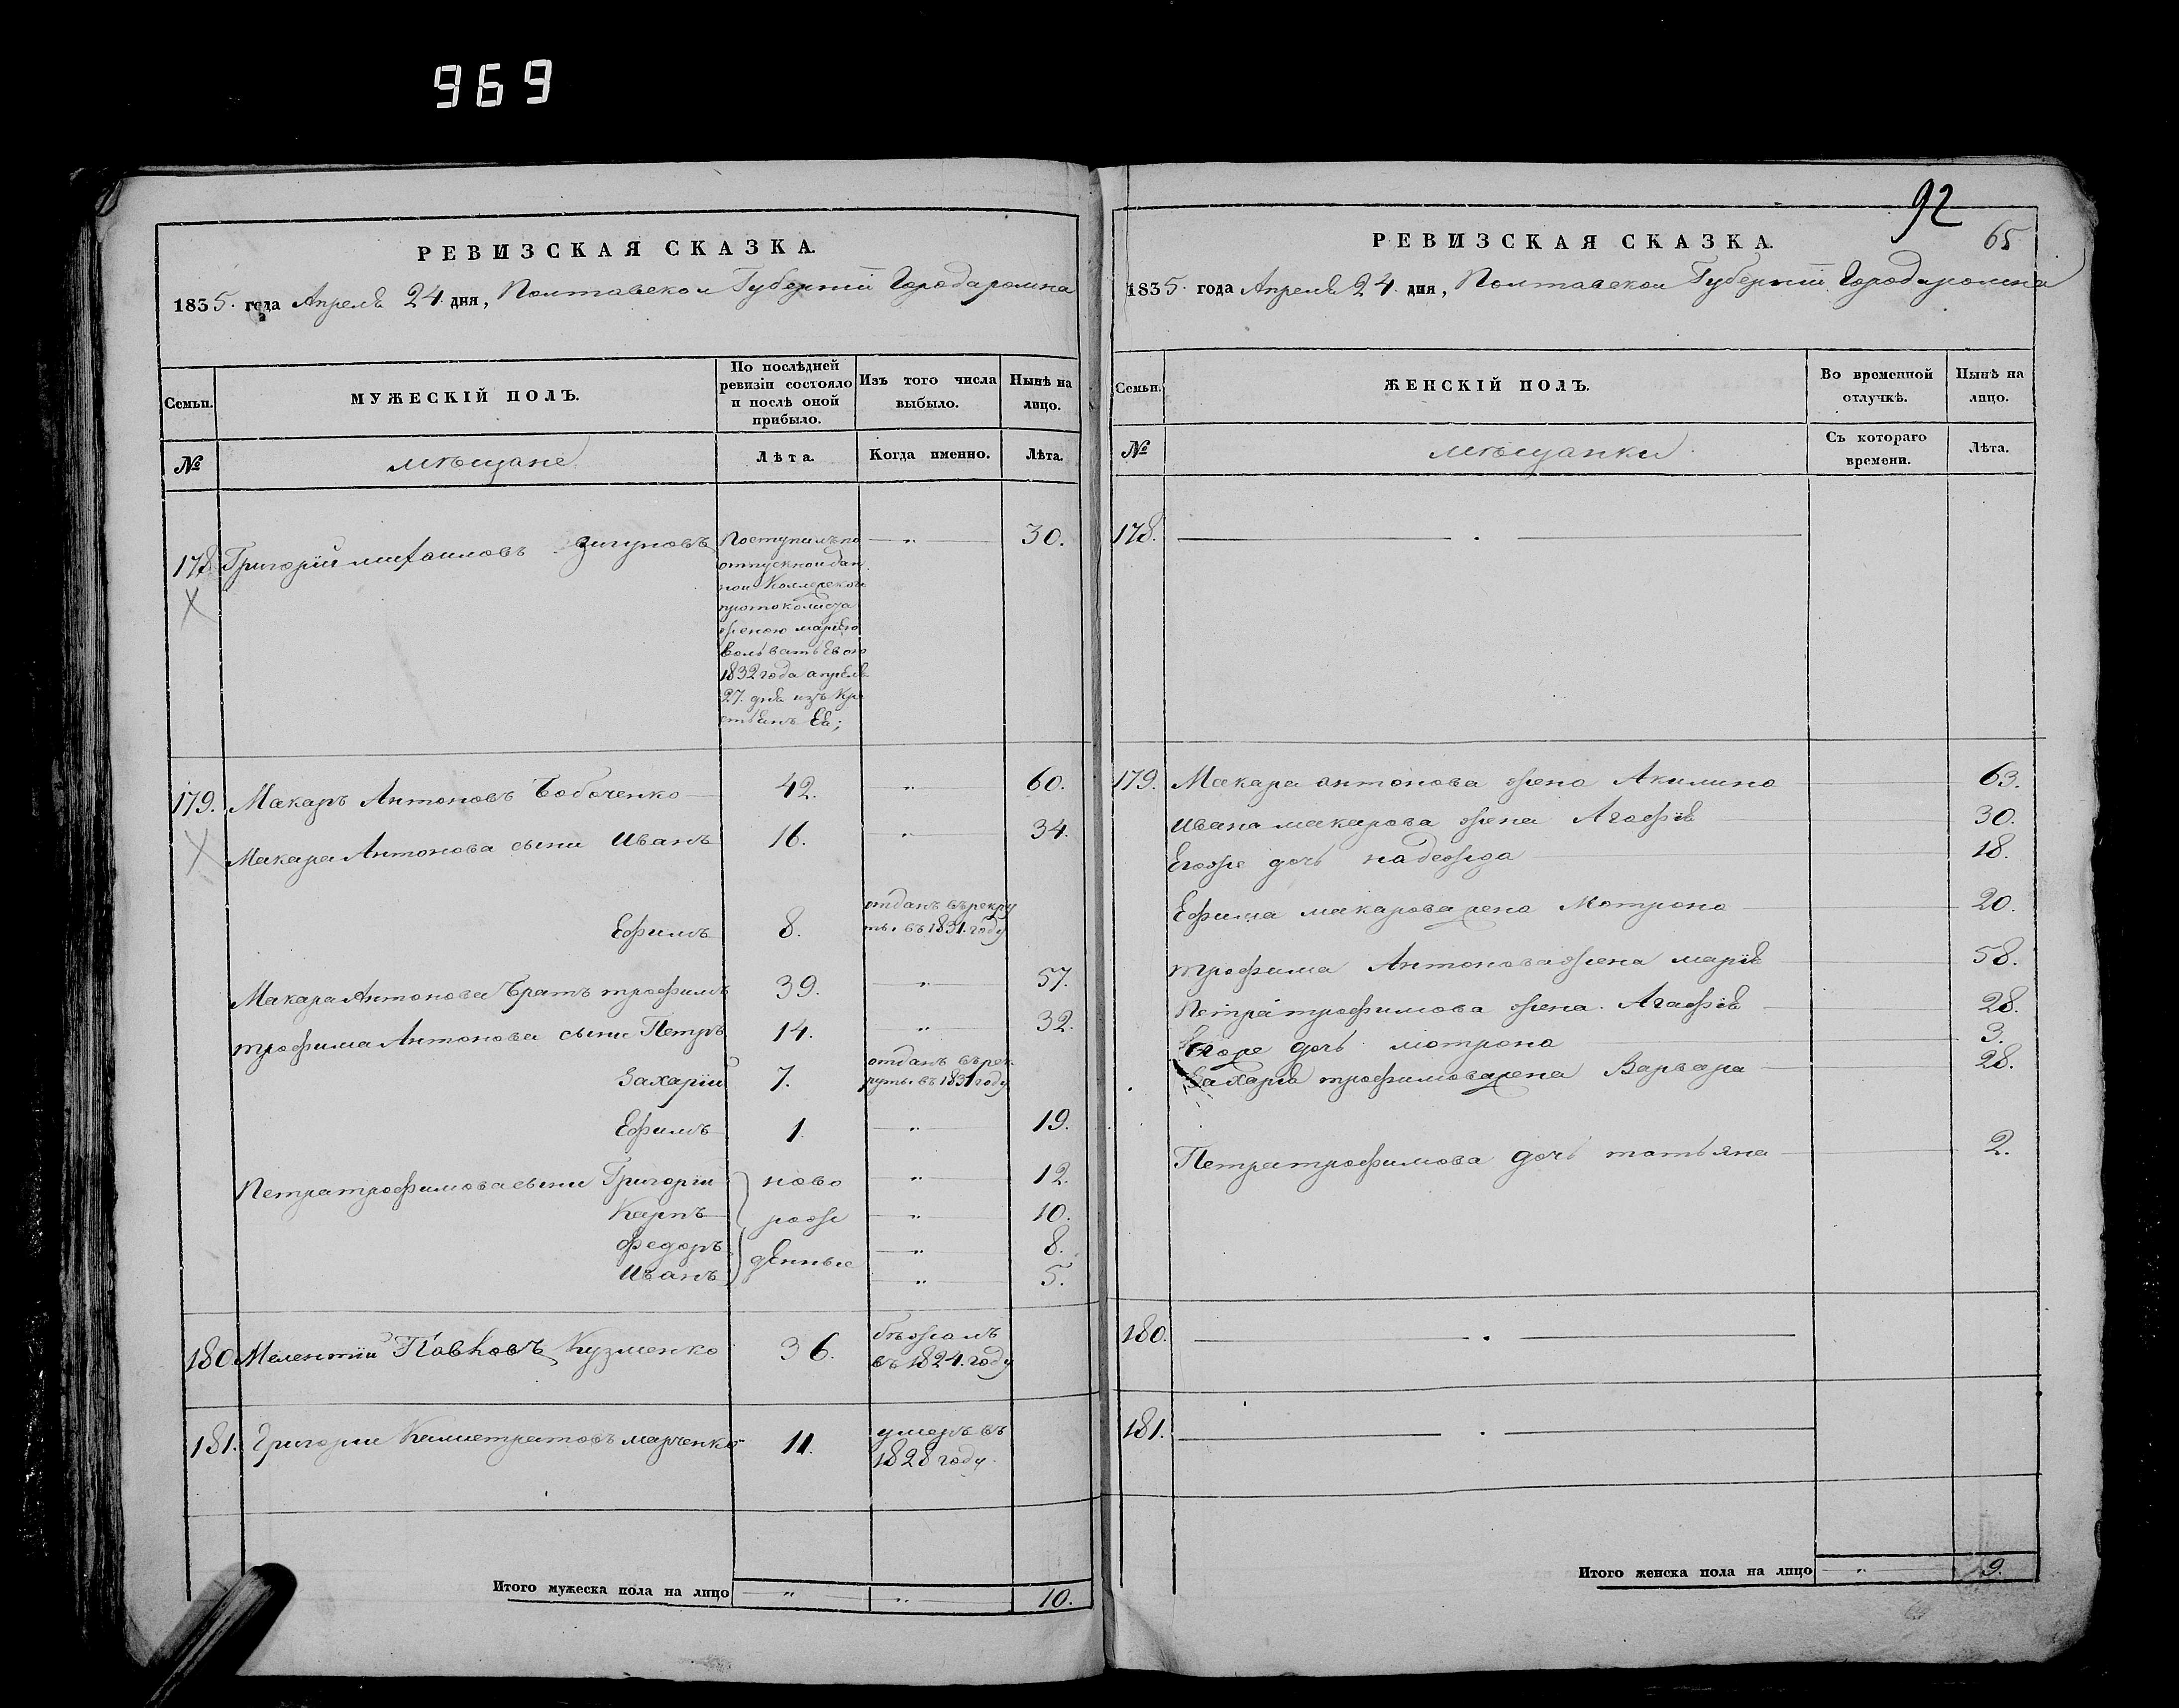 969
РЕВИЗСКАЯ СКАЗКА.
1835. года Апреля 24. дня, Полтавской Губернїи Города ромна
Семьи.
МУЖЕСКІЙ ПОЛЪ.
По послѣдней ревизіи состояло и послѣ оной прибыло.
Изъ того числа выбыло.
Нынѣ на лицо.
№
мѣщане
Лѣта.
Когда именно.
Лѣта.
178 Григорїй михаиловъ зигуновъ Поступилъ по „ 30.
отпускной дан
ной Колежскои
протоколиста
женою марїею
1832 года апреля
27. дня изъ Кре
стьянъ Ея;
179. Макаръ Антоновъ Бобоченко 42. „ 60.
Макара Антонова сыни Иванъ 16. „ 34.
Ефимъ 8. отданъ въ рекру
ты. въ 1831. году
Макара Антонова братъ трофимъ 39. „ 57.
трофима Антонова сыни Петръ 14. „ 32.
Захарїй 7. отданъ въ рек
руты. въ 1831 году
Ефимъ 1. „ 19.
Петра трофимова сыни Григорїи ново „ 12.
Карпъ рож „ 10.
федоръ денные „ 8.
Иванъ „ 5.
180 Мелентїи Павловъ Кузменко 36. бѣжалъ
въ 1824. году
181. Григории Калистратовъ марченко 11. умеръ въ
1828 году.
Итого мужеска пола на лицо „ „ 10.
92
65
РЕВИЗСКАЯ СКАЗКА.
1835. года Апреля 24. дня, Полтавской Губернїи Города ромна
Семьи.
ЖЕНСКІЙ ПОЛЪ.
Во временной отлучкѣ.
Нынѣ на лицо.
№
мѣщанки
Съ котораго времени.
Лѣта.
178.
179. Макара антонова жена Акилина 63.
Ивана макарова жена Агафїя 30.
Егоже дочь надежда 18.
Ефима макарова жена Мотрона 20.
трофима Антонова жена марїя 58.
Петра трофимова жена. Агафїя 28.
Егоже дочь мотрона 3.
Захарїя трофимова жена Варвара 28.
Петра трофимова дочь татьяна 2.
180.
181.
Итого женска пола на лицо „ 9.